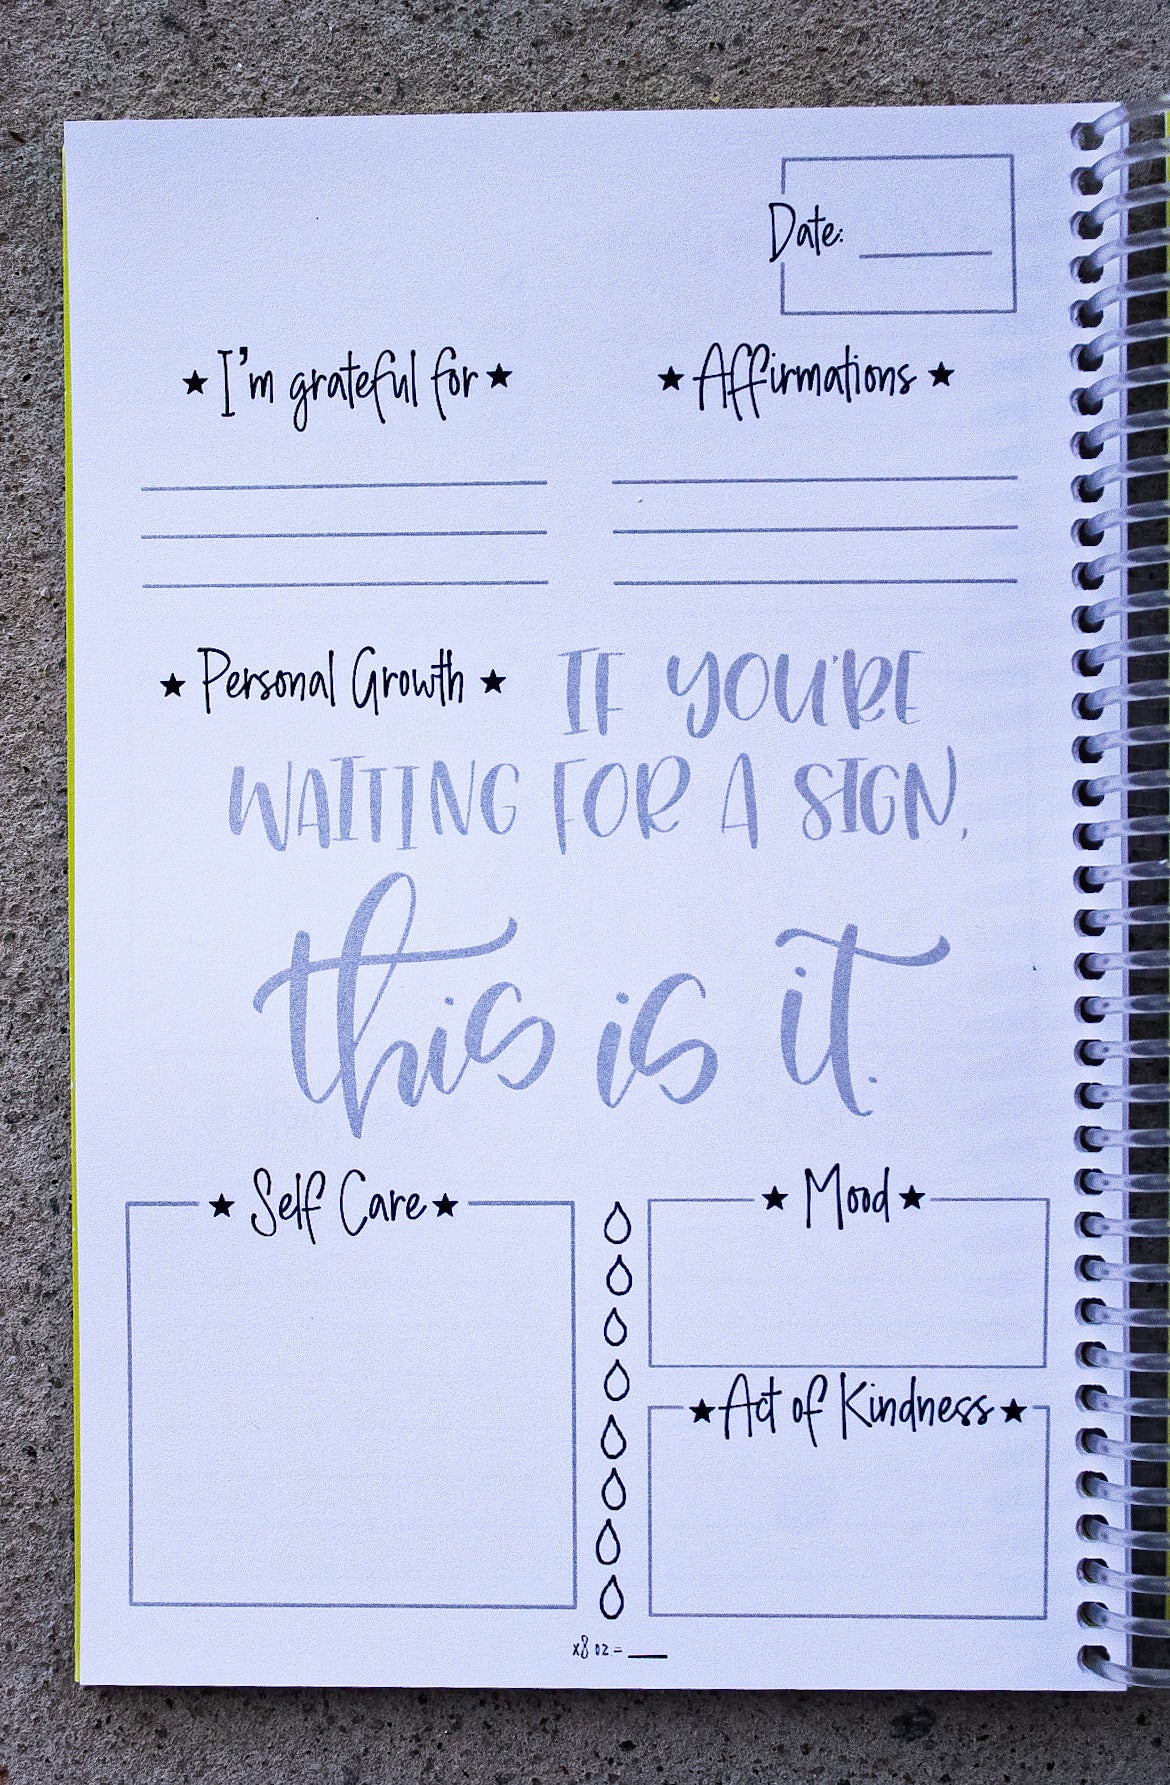 Date:
I'm grateful for
Affirmations
Personal Growth
IF YOU'RE
WAITING FOR A SIGN,
this is it.
Self Care
Mood
Act of Kindness
x8 oz =